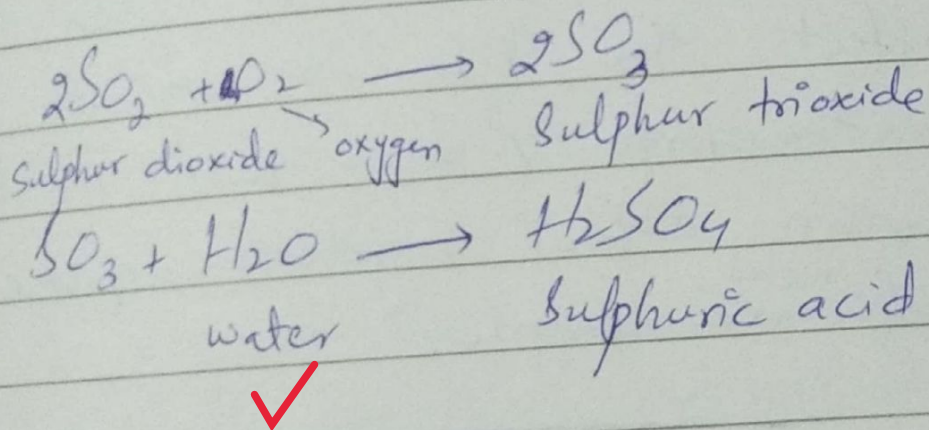 2SO₂ + O₂ → 2SO₃
sulphur dioxide oxygen Sulphur trioxide
SO₃ + H₂O → H₂SO₄
water Sulphuric acid